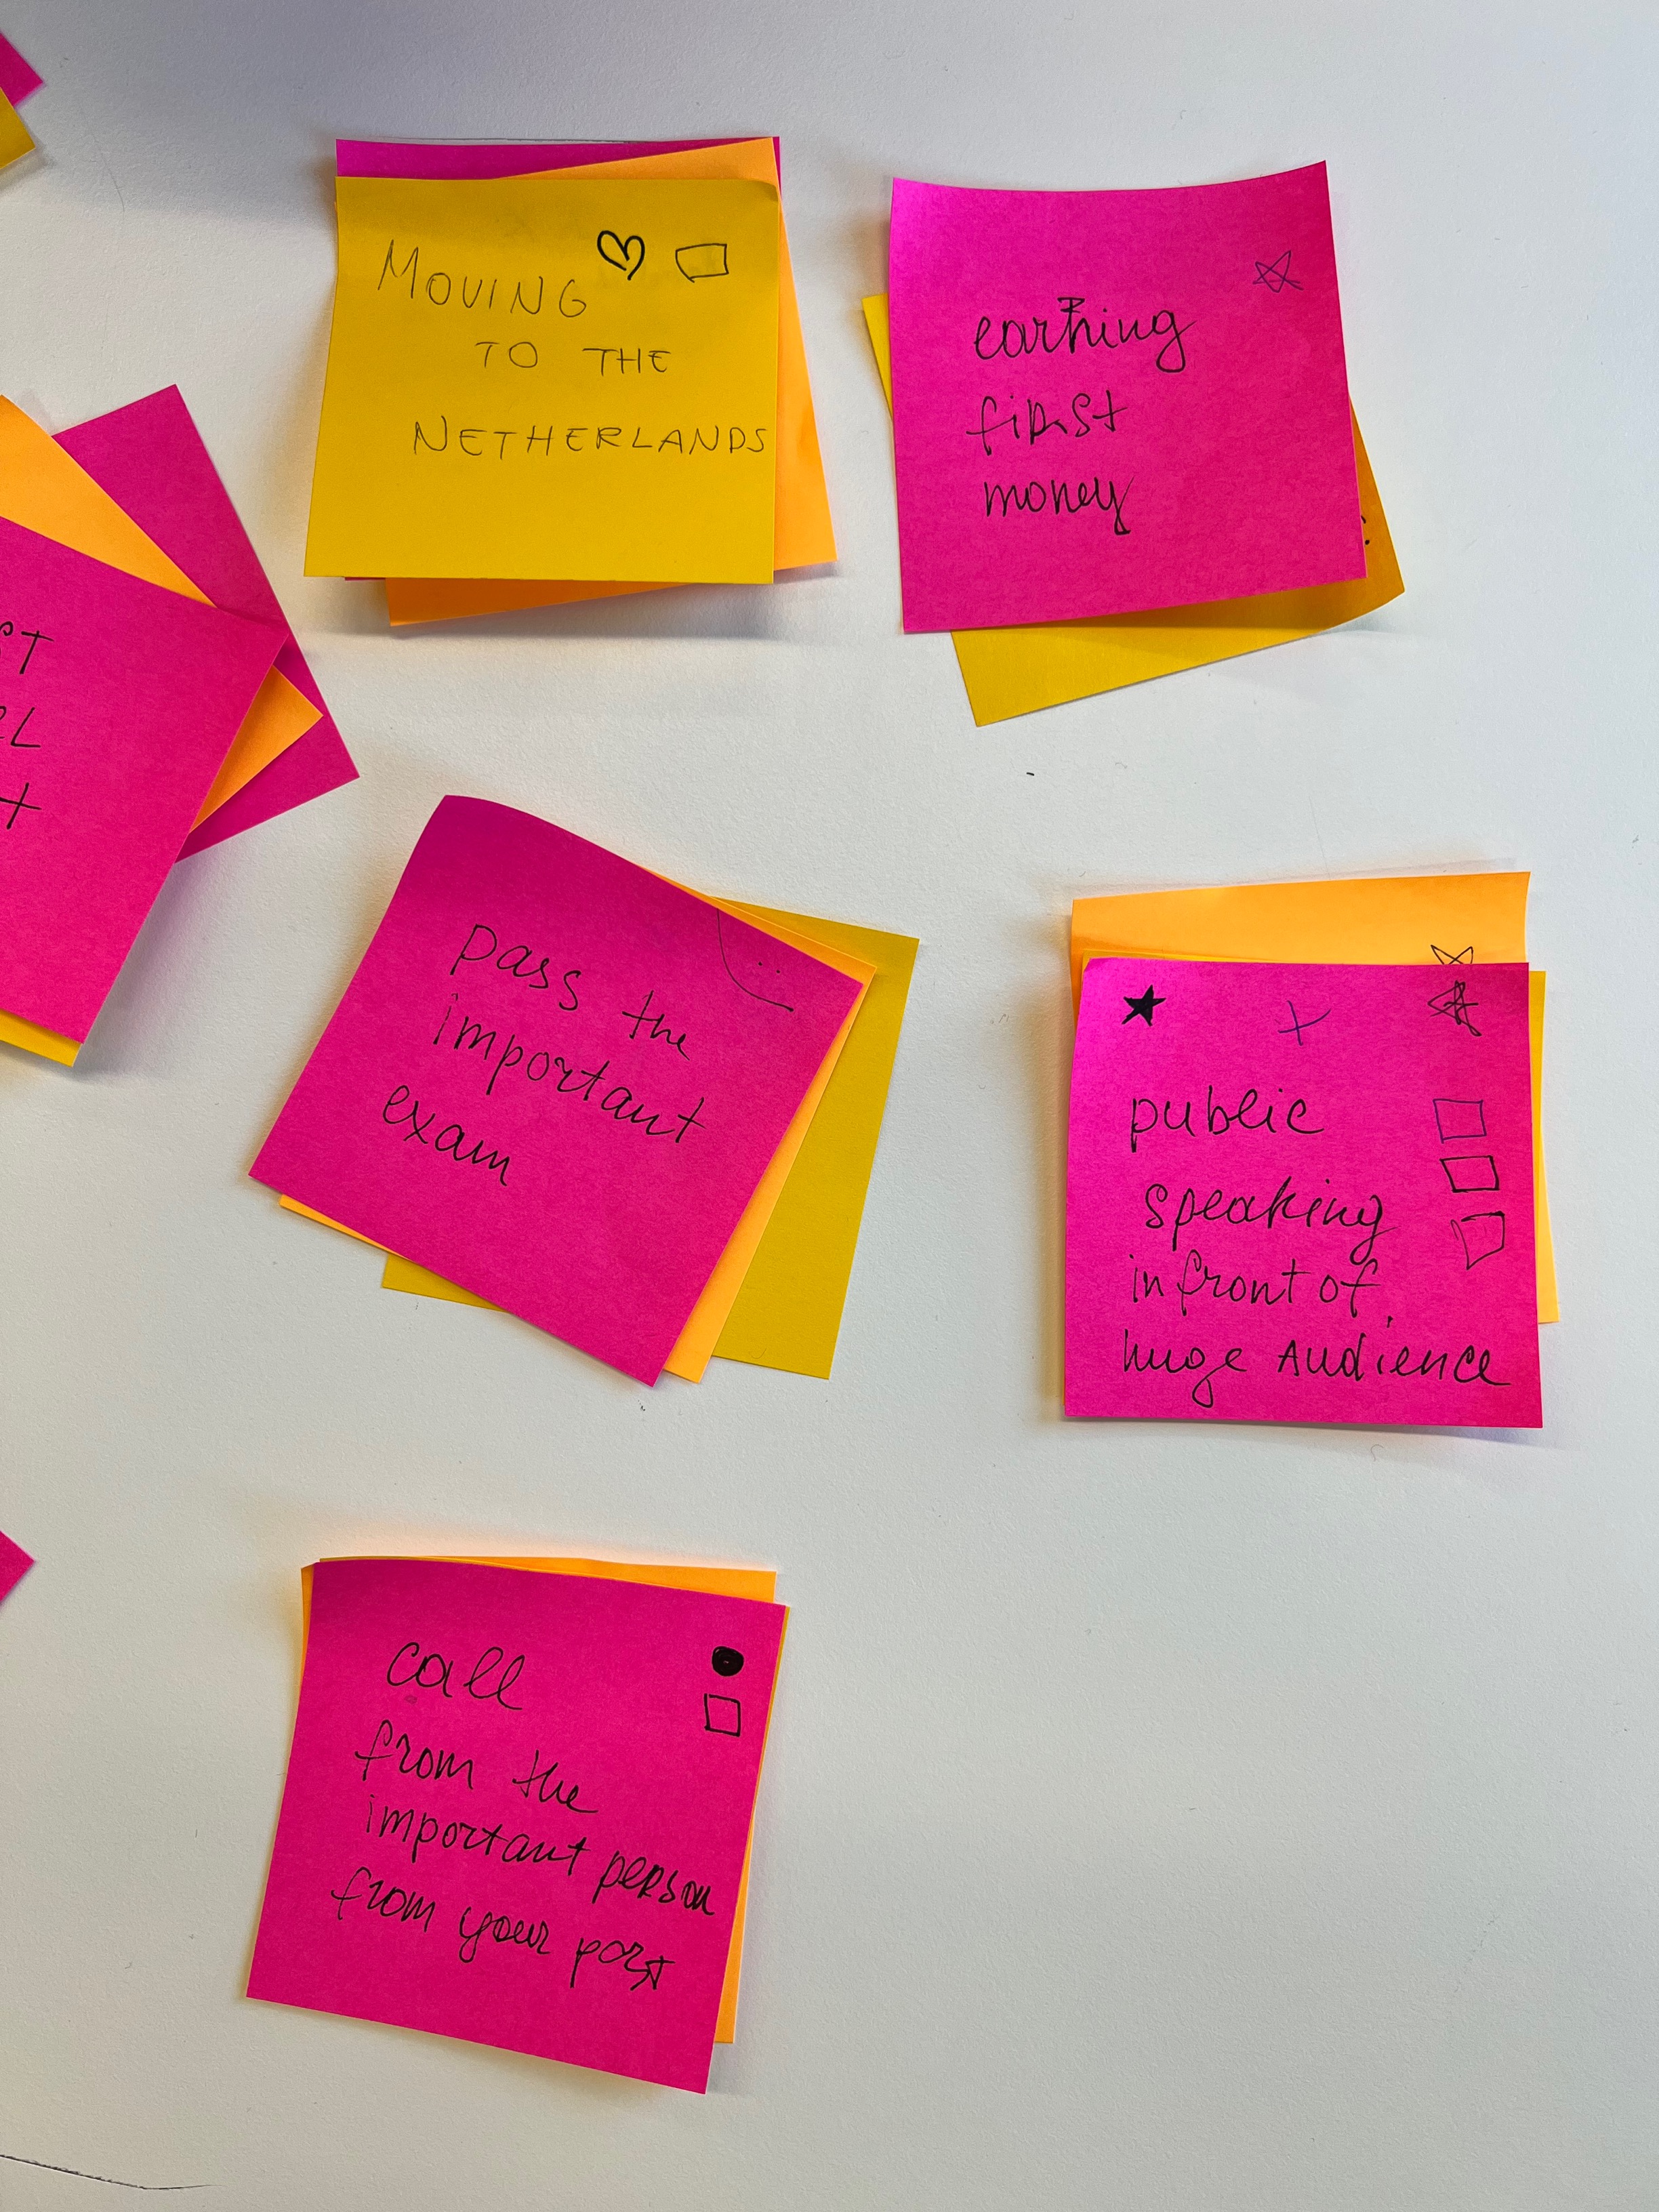 MOVING
TO THE
NETHERLANDS
earning
first
money
ST
EL
pass the
important
exam
public
speaking
in front of
huge AUdience
call
from the
important person
from your past